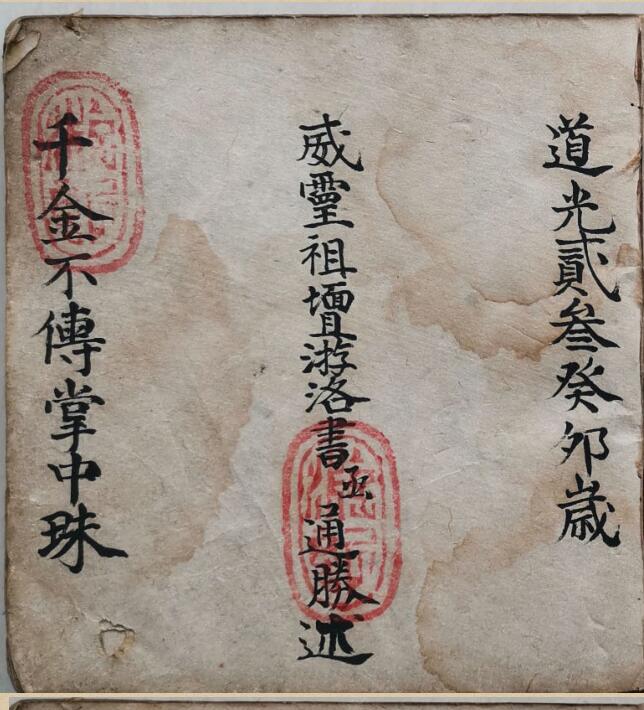 道光貳叁癸夘歲
威霊祖壇游洛書丞通勝述
千金不傳掌中珠